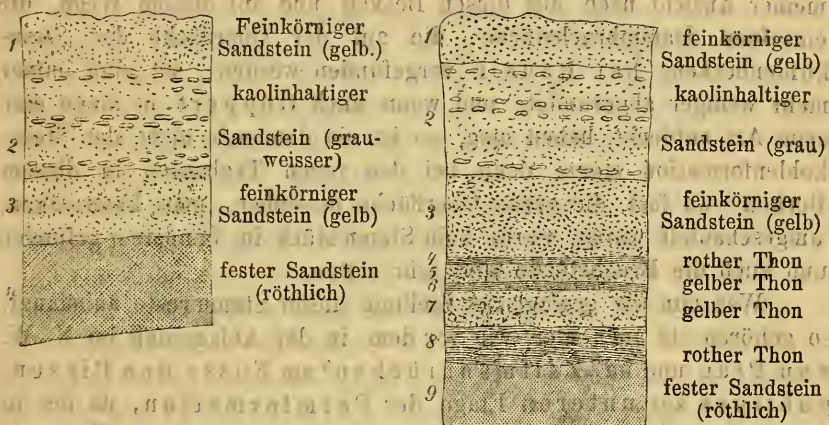 Feinkörniger
Sandstein (gelb.)
kaolinhaltiger
Sandstein (grau-
weisser)
feinkörniger
Sandstein (gelb)
fester Sandstein
(röthlich)
1
2
3
feinkörniger
Sandstein (gelb)
kaolinhaltiger
Sandstein (grau)
feinkörniger
Sandstein (gelb)
rother Thon
gelber Thon
gelber Thon
rother Thon
fester Sandstein
(röthlich)
1
2
3
4
5
6
7
8
9